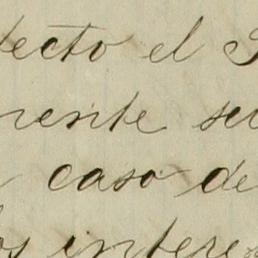 fecto el
mente se
caso de
los intere